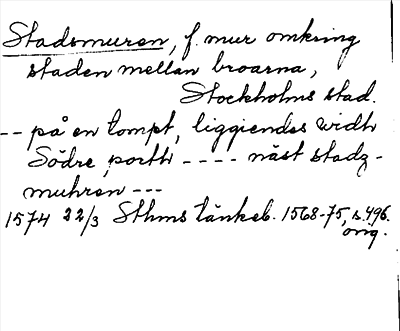 Stadsmuren, f. mur omkring
staden mellan broarna,
Stockholms stad.
-- på en tompt, liggiendes widh
Södre portth ---- näst stadz-
muhren ---
1574 22/3 Sthms tänkeb. 1568-75, s. 496.
orig.